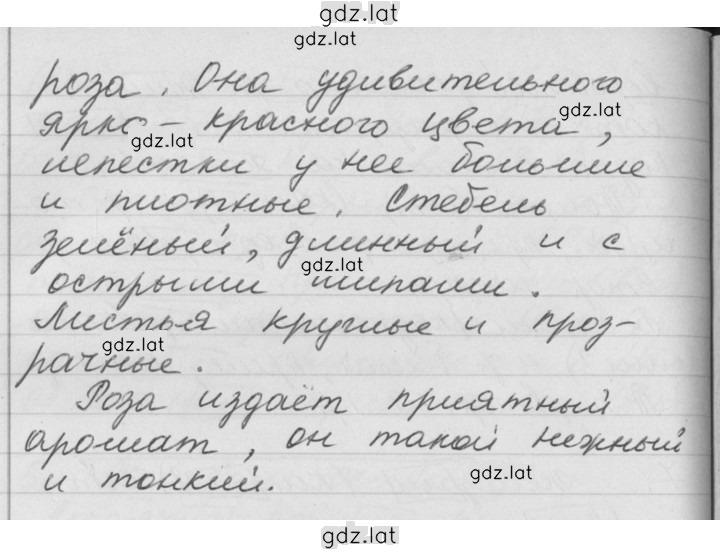 gdz.lat
gdz.lat
роза. Она удивительного
gdz.lat
ярко-красного цвета,
gdz.lat
лепестки у нее большие
и плотные. Стебель
зелёный, длинный и с
gdz.lat
острыми шипами.
Листья круглые и проз-
gdz.lat
рачные.
Роза издаёт приятный
аромат, он такой нежный
gdz.lat
и тонкий.
gdz.lat